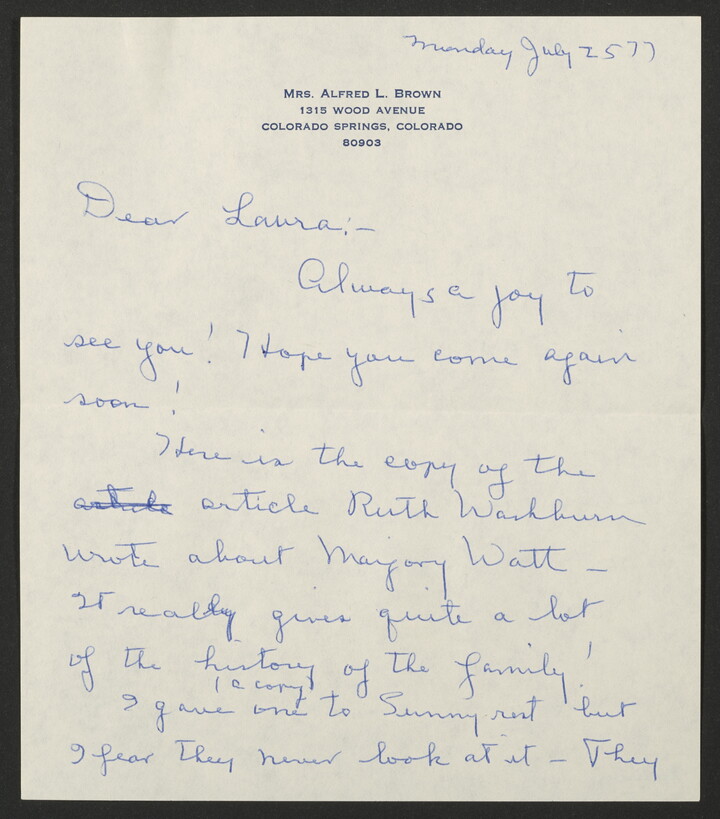 Monday July 25 77
MRS. ALFRED L. BROWN
1315 WOOD AVENUE
COLORADO SPRINGS, COLORADO
80903
Dear Laura:-
Always a joy to
see you! Hope you come again
soon!
Here is the copy of the
article article Ruth Washburn
wrote about Marjory Watt -
It really gives quite a lot
of the history of the family!
(a copy)
I gave one to Sunnyrest but
I fear they never look at it - They